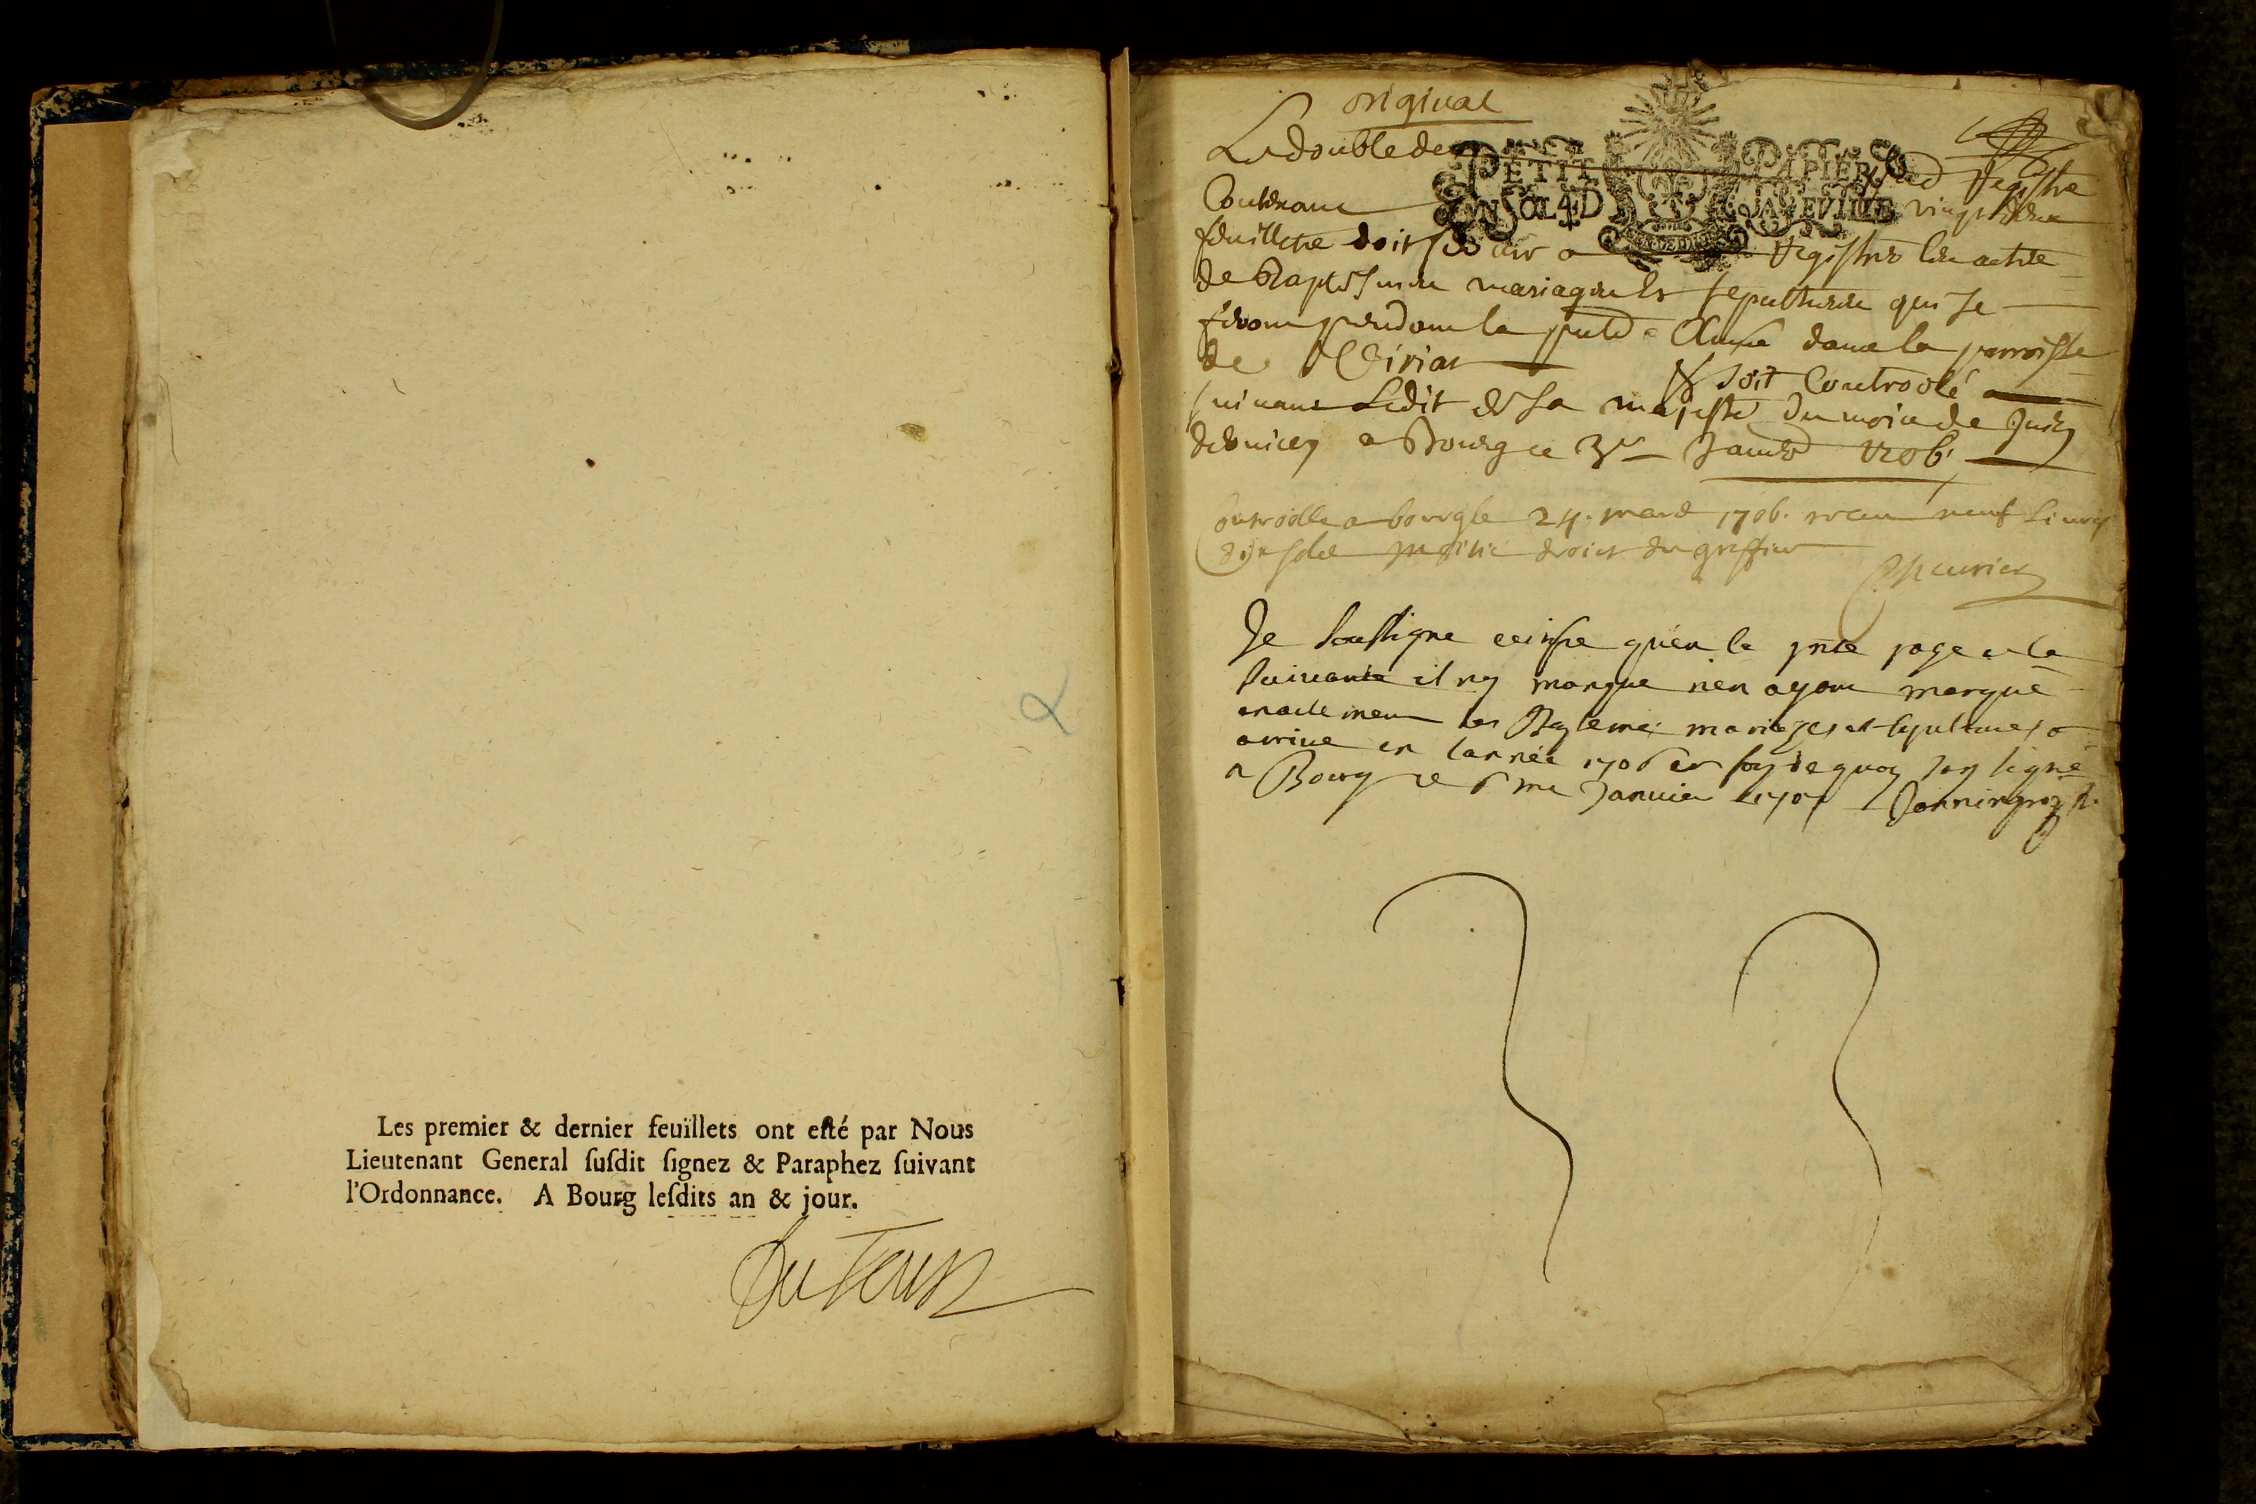 Les premier & dernier feuïllets ont eſté par Nous
Lieutenant General ſuſdit ſignez & Paraphez ſuivant
l'Ordonnance. A Bourg leſdits an & jour.
original
Le double de
PETIT PAPIER
EN SOL 4 D LA FEVILLE
registre
Contenant vingt deux
feuillets doit servir a registrer les actes
de Baptesmes mariages et sepultures qui se
feront pendant la pnte Année dans la parroisse
de Viriat
& soit Controolé
suivant Ledit de Sa majesté du mois de Juin
dernier a Bourg ce 3e Janvr 1706
Controollé a bourg le 24. mars 1706. receu neuf livres
dix sols moitié droict du greffier
Je soussigné certifie qu'en la pnte page et la
suivante il ny manque rien ayant marqué
exactement les Baptemes mariages et sepultures
arrivé en l'année 1706 en foy de quoy jay signé
a Bourg ce 6me Janvier